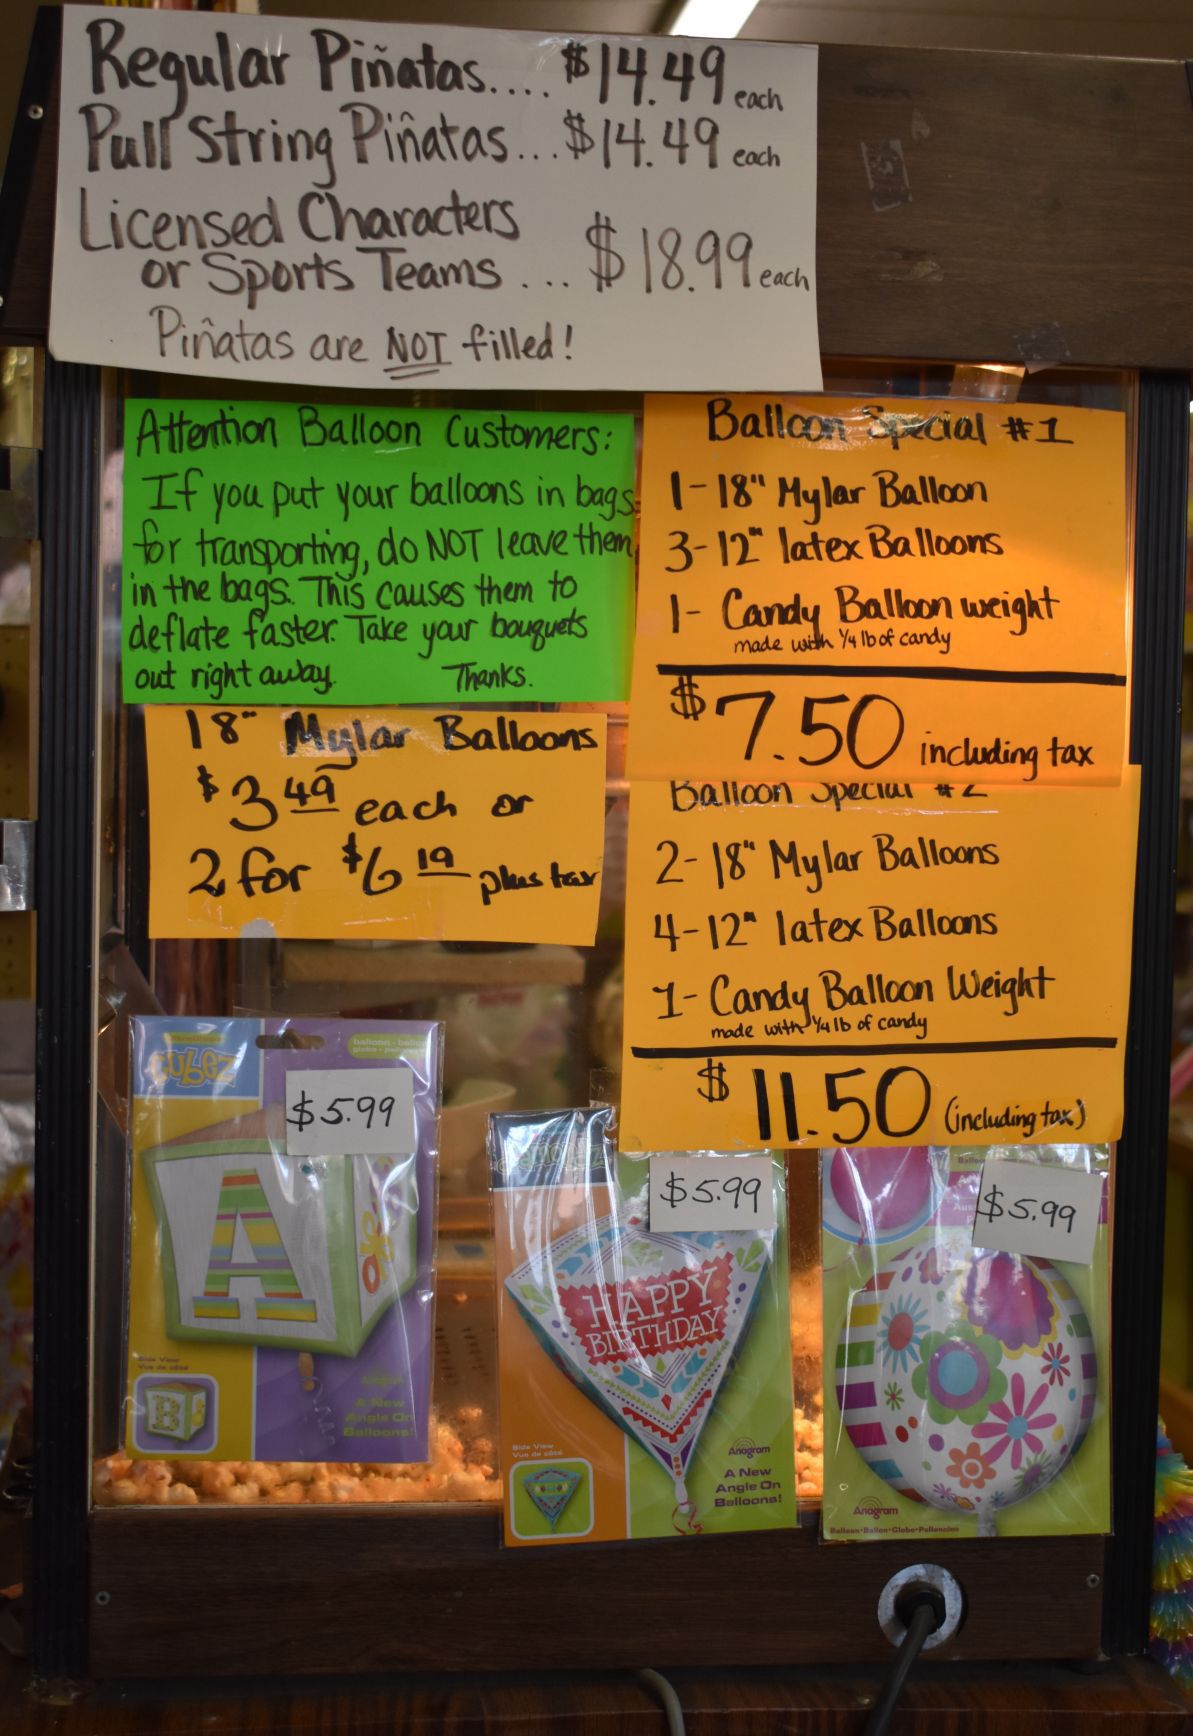 Regular Piñatas.... $14.49 each
Pull String Piñatas... $14.49 each
Licensed Characters
or Sports Teams ... $18.99 each
Piñatas are NOT filled!
Attention Balloon Customers:
If you put your balloons in bags
for transporting, do NOT leave them
in the bags. This causes them to
deflate faster. Take your bouquets
out right away. Thanks.
Balloon Special #1
1-18" Mylar Balloon
3-12" latex Balloons
1- Candy Balloon weight
made with 1/4 lb of candy
$7.50 including tax
18" Mylar Balloons
$3 49 each or
2 for $6 19 plus tax
Balloon Special #2
2-18" Mylar Balloons
4-12" latex Balloons
1- Candy Balloon Weight
made with 1/4 lb of candy
$11.50 (including tax)
cubez
$5.99
A
Side View
Vue de côté
B
Anagram
A New
Angle On
Balloons!
$5.99
HAPPY
BIRTHDAY
Side View
Vue de côté
Anagram
A New
Angle On
Balloons!
$5.99
Anagram
Balloon•Ballon•Globo•Palloncino